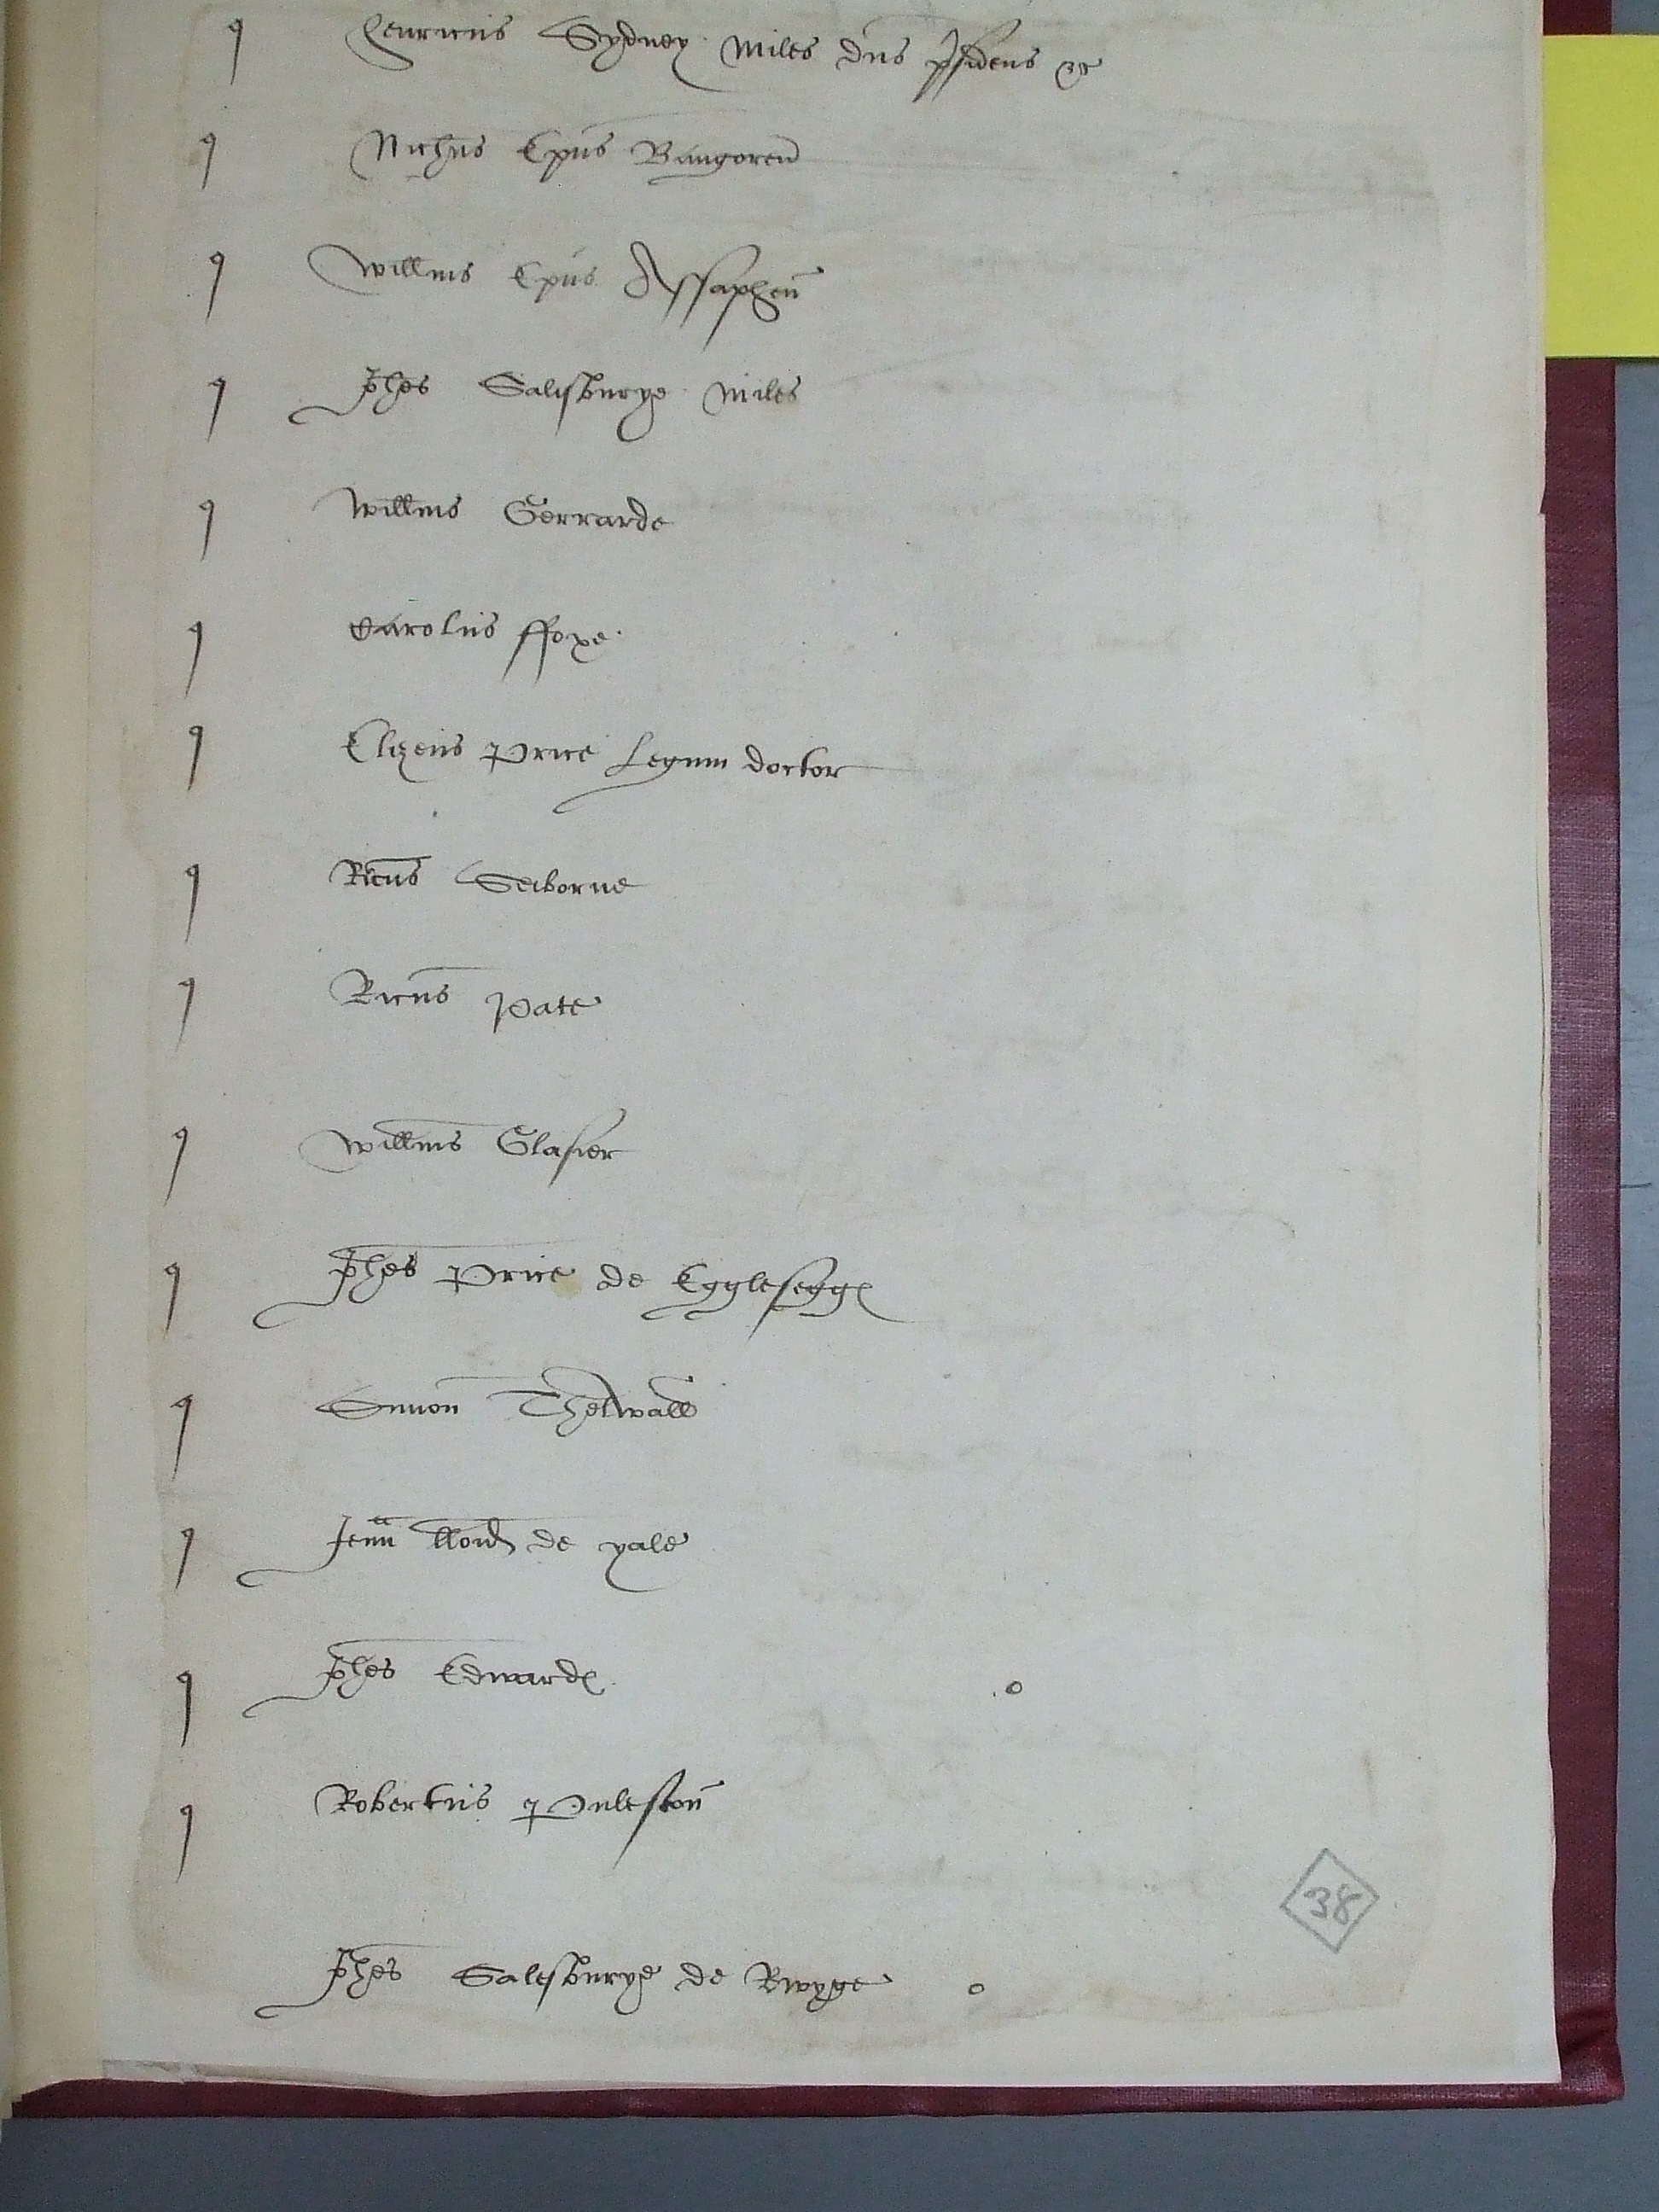 q Henricus Sydney miles dns psidens &c
q Nichus Epus Bangoren
q Willms Epus Assaphen
q Johes Salisburye miles
q Willms Gerrarde
q Carolus ffoxe
q Elizeus Price Legum doctor
q Ricus Seborne
q Ricus Pate
q Willms Glasier
q Johes Price de Egglesegg
q Simon Thelwall
q Jeuu lloid de yale
q Johes Edwards o
q Robertus Puleston
Johes Salesburye de Rwge o
38